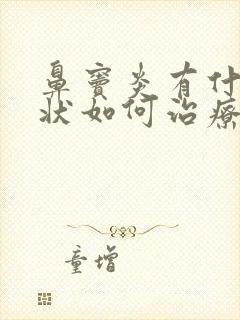 鼻窦炎有什
状如何治疗
童增